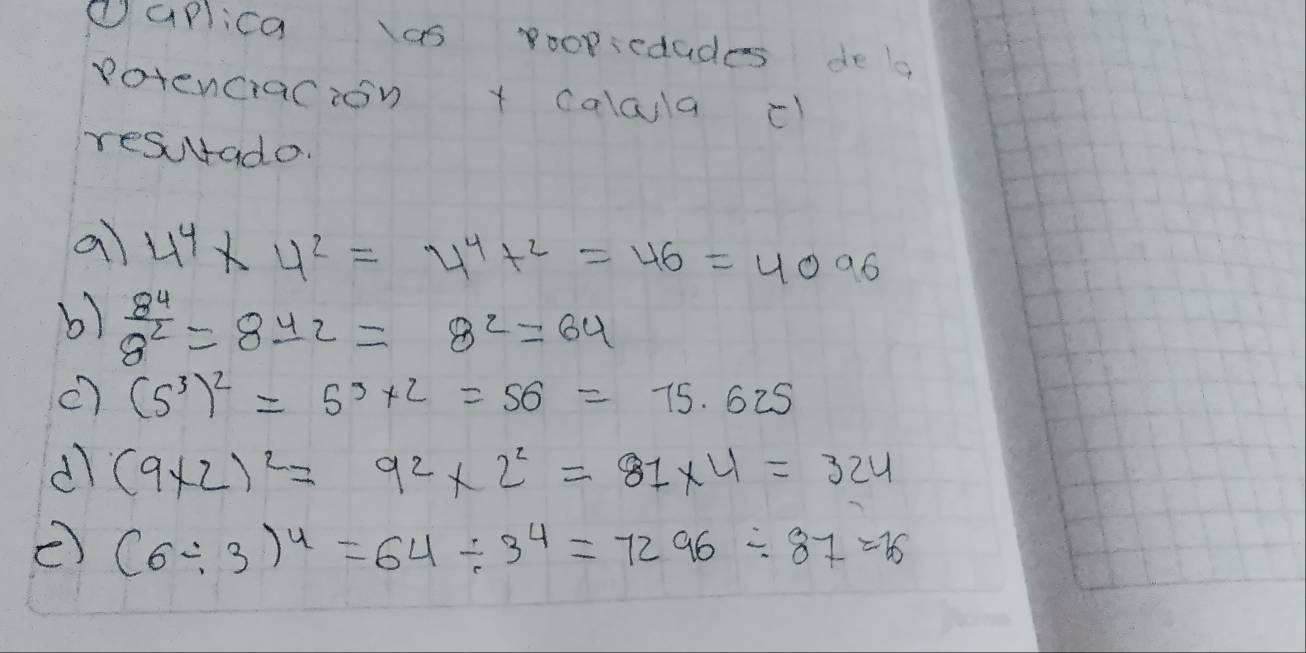 ① aplica las propiedades de la
Potenciación y calcula el
resultado.
a) 4⁴ × 4² = 4⁴⁺² = 46 = 4096
b) 8⁴/8² = 8⁴⁻2 = 8² = 64
c) (5³)² = 5³ˣ2 = 56 = 15.625
d) (9×2)² = 9² × 2² = 81×4 = 324
e) (6÷3)⁴ = 64 ÷ 3⁴ = 1296 ÷ 81 = 16